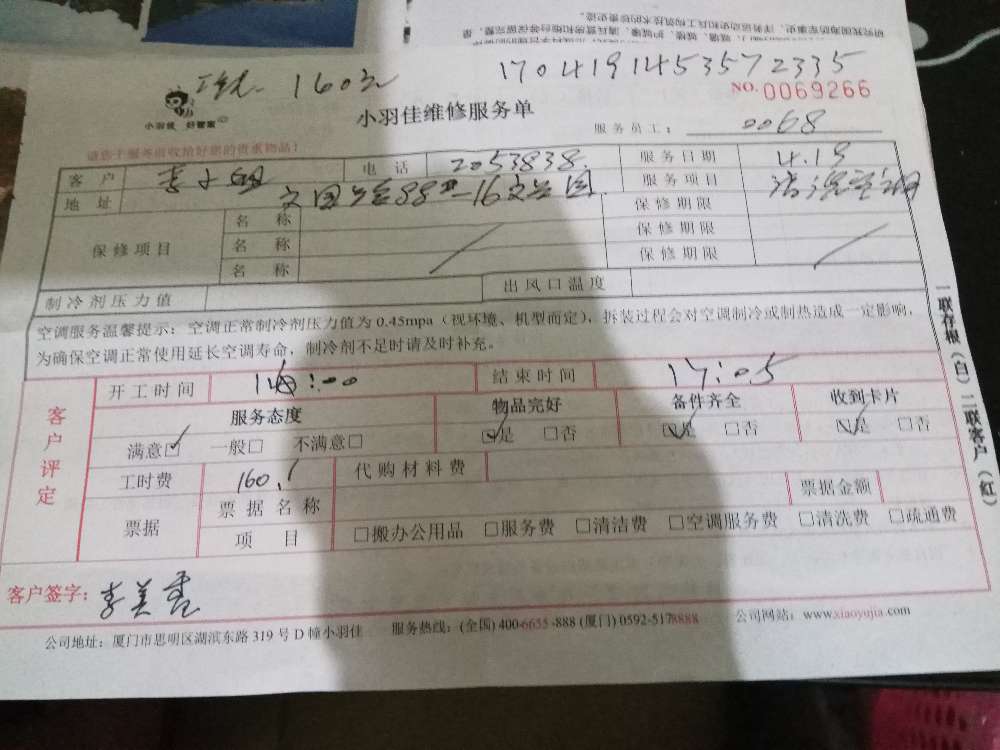 1704191453572335
160元
NO.0069266
小羽佳 好管家
小羽佳维修服务单
服务员工: 0068
客户 李小姐 电话 2053838 服务日期 4.19
地址 服务项目
保修项目 名称 保修期限
名称 保修期限
名称 保修期限
制冷剂压力值 出风口温度
空调服务温馨提示：空调正常制冷剂压力值为0.45mpa（视环境、机型而定），拆装过程会对空调制冷或制热造成一定影响，
为确保空调正常使用延长空调寿命，制冷剂不足时请及时补充。
开工时间 结束时间 17:05
客户评定
服务态度 物品完好 备件齐全 收到卡片
满意☑ 一般□ 不满意□ ☑是 □否 ☑是 □否 ☑是 □否
工时费 160. 代购材料费
票据 票据名称 票据金额
项目 □搬办公用品 □服务费 □清洁费 □空调服务费 □清洗费 □疏通费
客户签字: 李美香
公司地址：厦门市思明区湖滨东路319号D幢小羽佳 服务热线：(全国) 400-6655-888 (厦门) 0592-5178888 公司网站：www.xiaoyujia.com
一联存根（白）二联客户（红）